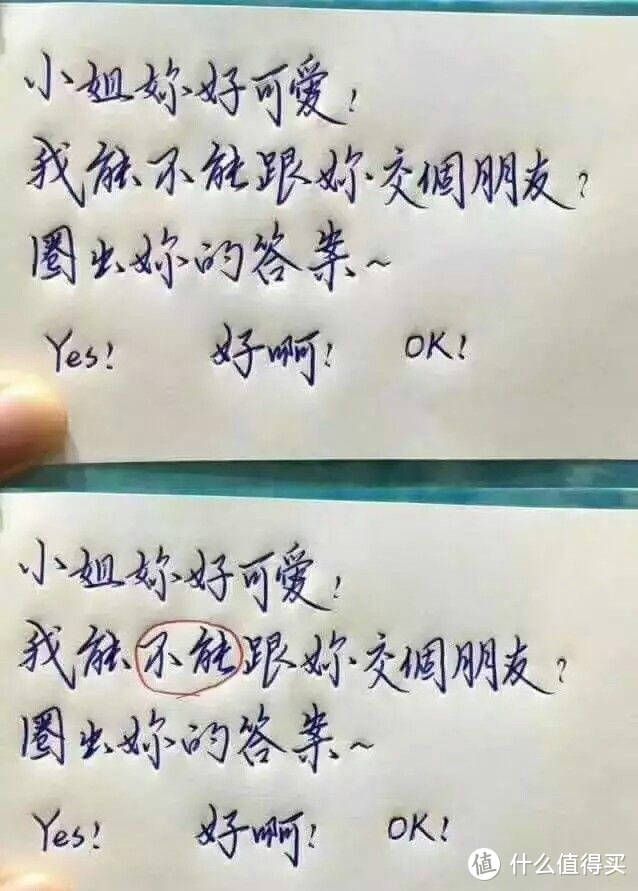 小姐妳好可愛!
我能不能跟妳交個朋友?
圈出妳的答案~
Yes! 好啊! OK!
小姐妳好可愛!
我能不能跟妳交個朋友?
圈出妳的答案~
Yes! 好啊! OK!
值 什么值得买